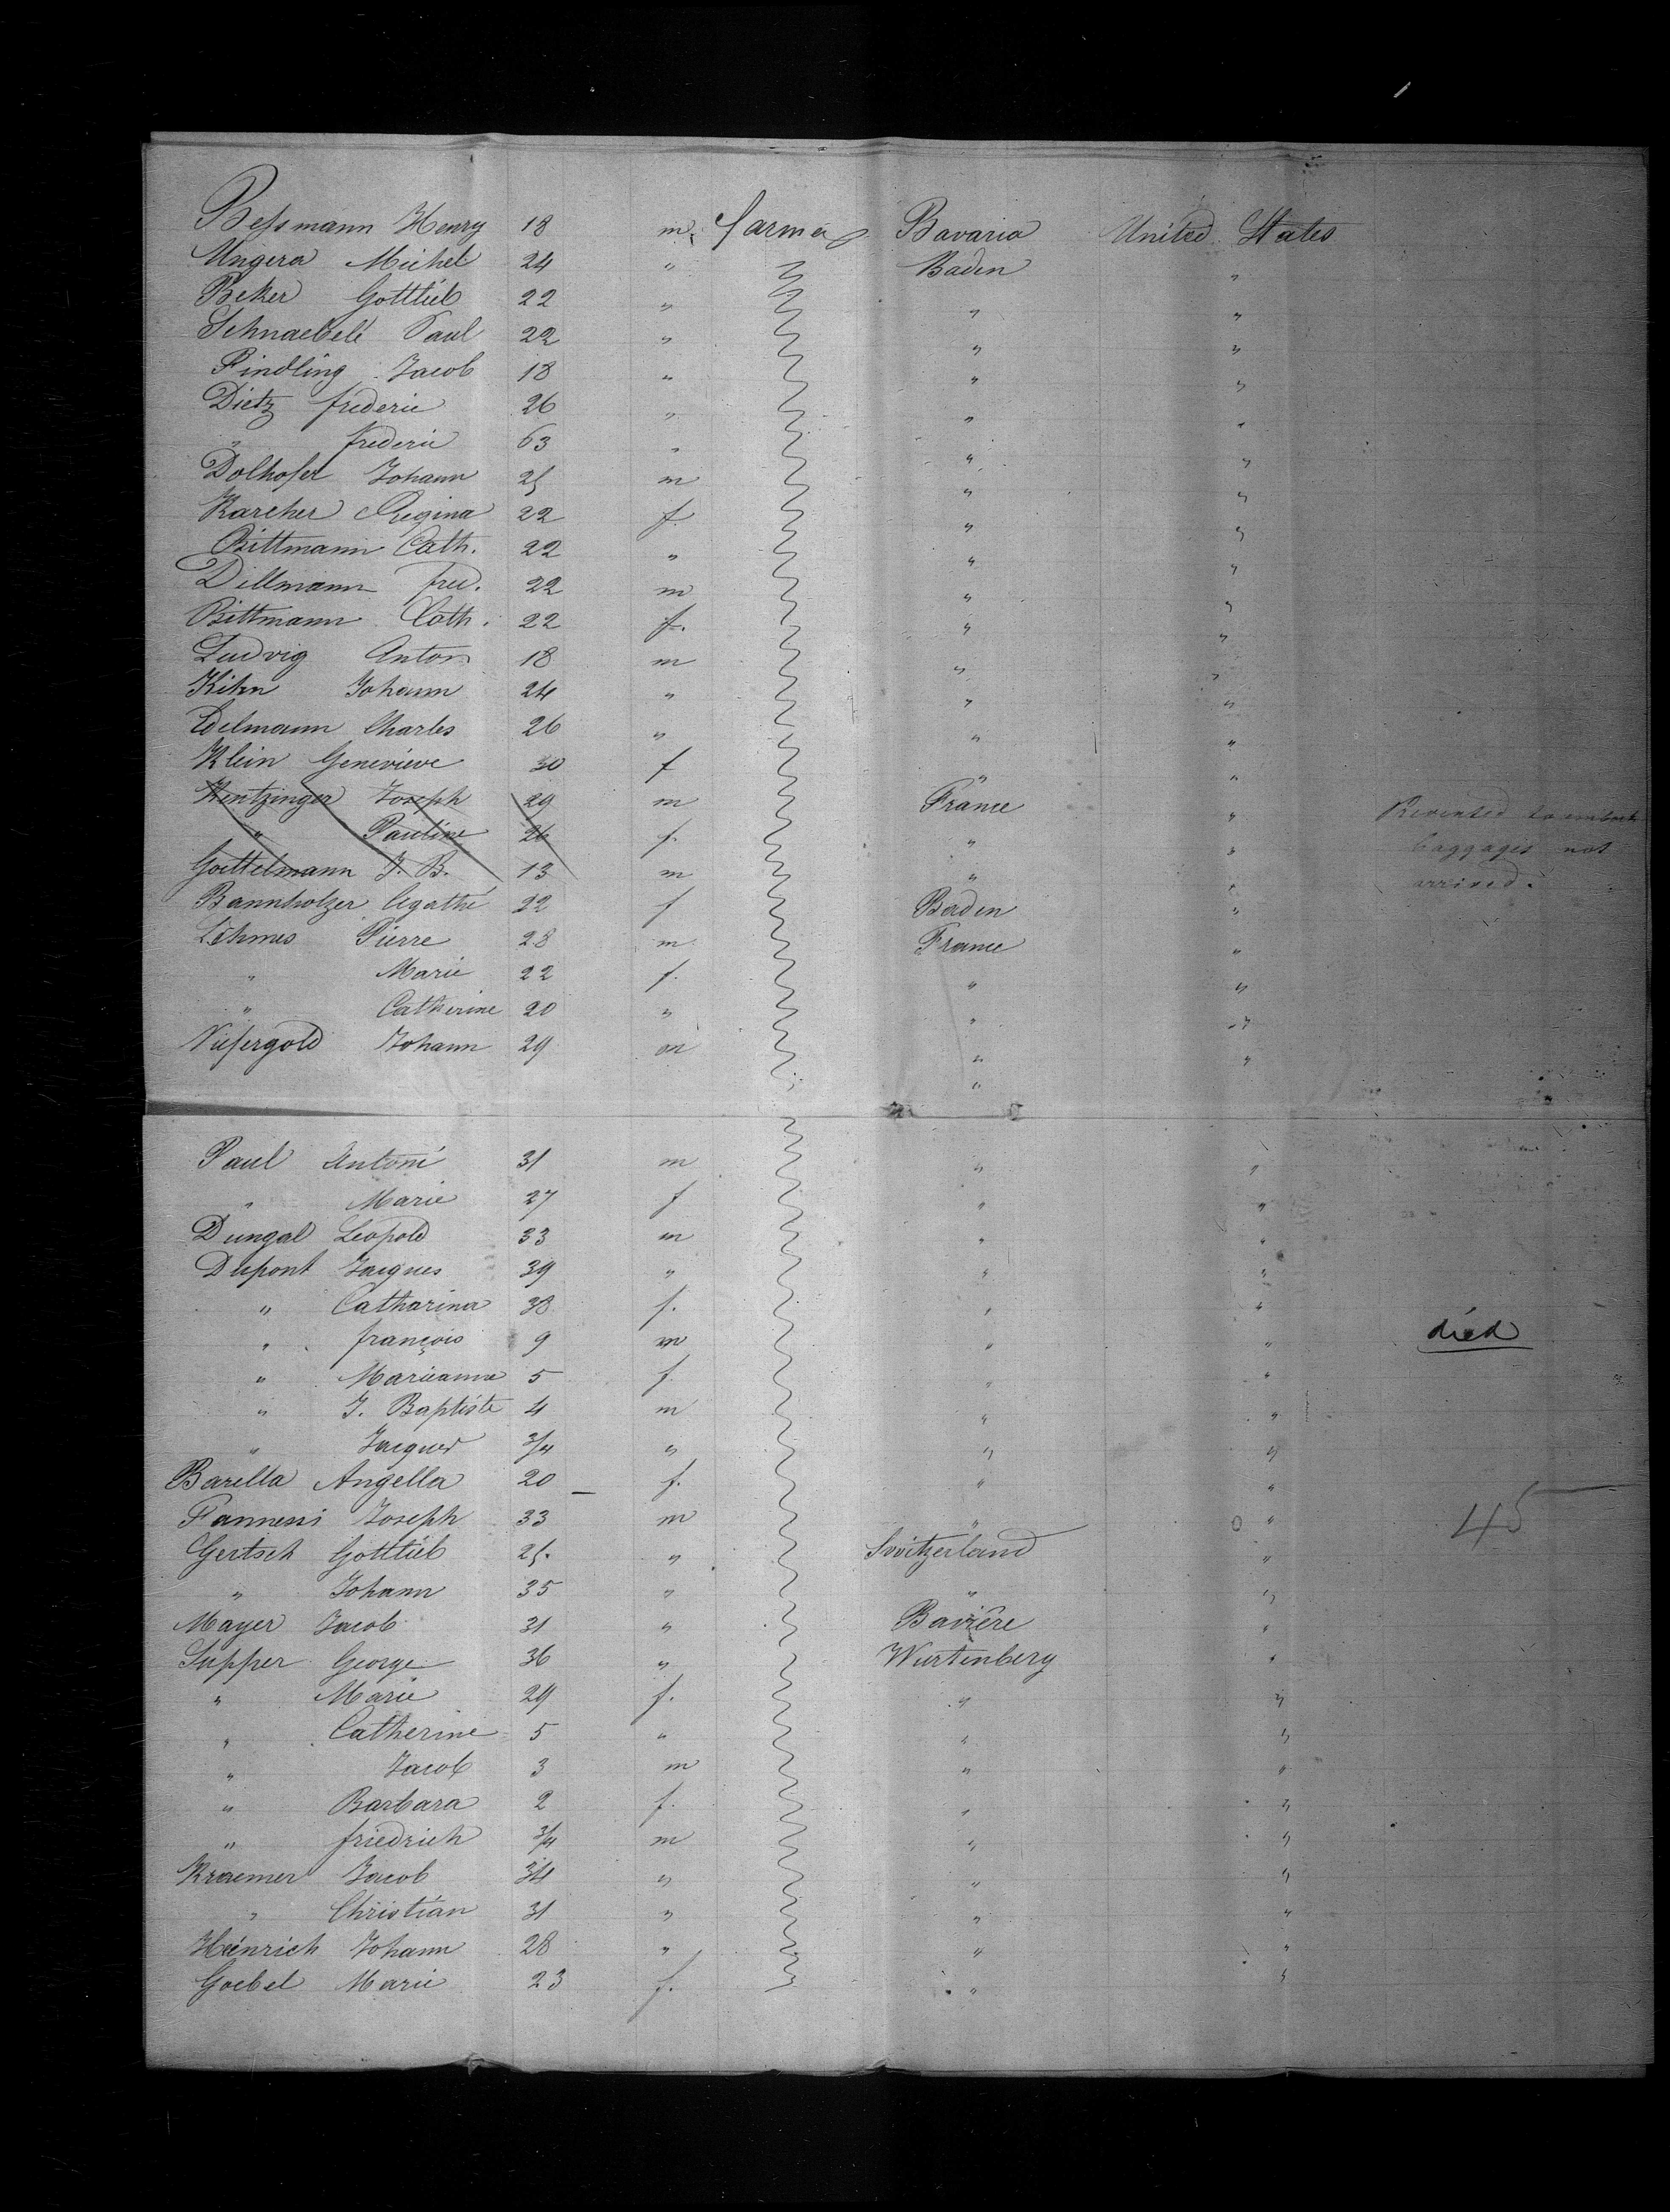 Bessmann Henry 18 m. farmer Bavaria United States
Ungerer Michel 24 " Baden "
Beker Gottlieb 22 " " "
Schnaebelé Paul 22 " " "
Findling Jacob 18 " " "
Dietz frederic 26 " " "
" frederic 63 " " "
Dolhofer Johann 25 m " "
Karcher Regina 22 f " "
Bittmann Cath. 22 " " "
Dillmann fred. 22 m " "
Bittmann Cath. 22 f. " "
Ludvig Anton 18 m " "
Kihn Johann 24 " " "
Edelmann Charles 26 " " "
Klein Genevieve 30 f " "
Kentzinger Joseph 29 m France " Prevented to embark
" Pauline 26 f. " " baggages not
Goettelmann J. B. 13 m " " arrived.
Bannholzer Agathe 22 f Baden "
Lehmes Pierre 28 m France "
" Marie 22 f. " "
" Catherine 20 " " "
Niefergold Johann 29 m " "
"
Paul Antoni 31 m " "
" Marie 27 f " "
Dungal Leopold 33 m " "
Dupont Jacques 39 " " "
" Catharina 38 f. " "
" françois 9 m " " died
" Marieanne 5 f " "
" J. Baptiste 4 m " "
" Jacques 3/4 " " "
Barella Angella 20 f. " "
Fannessi Joseph 33 m " " 45
Gertsch Gottlieb 25. " Switzerland "
" Johann 35 " " "
Mayer Jacob 31 " Bavière "
Supper George 36 " Wurtenberg "
" Marie 29 f. " "
" Catherine 5 " " "
" Jacob 3 m " "
" Barbara 2 f. " "
" friedrich 3/4 m " "
Kraemer Jacob 34 " " "
" Christian 31 " " "
Heinrich Johann 28 " " "
Goebel Marie 23 f. " "